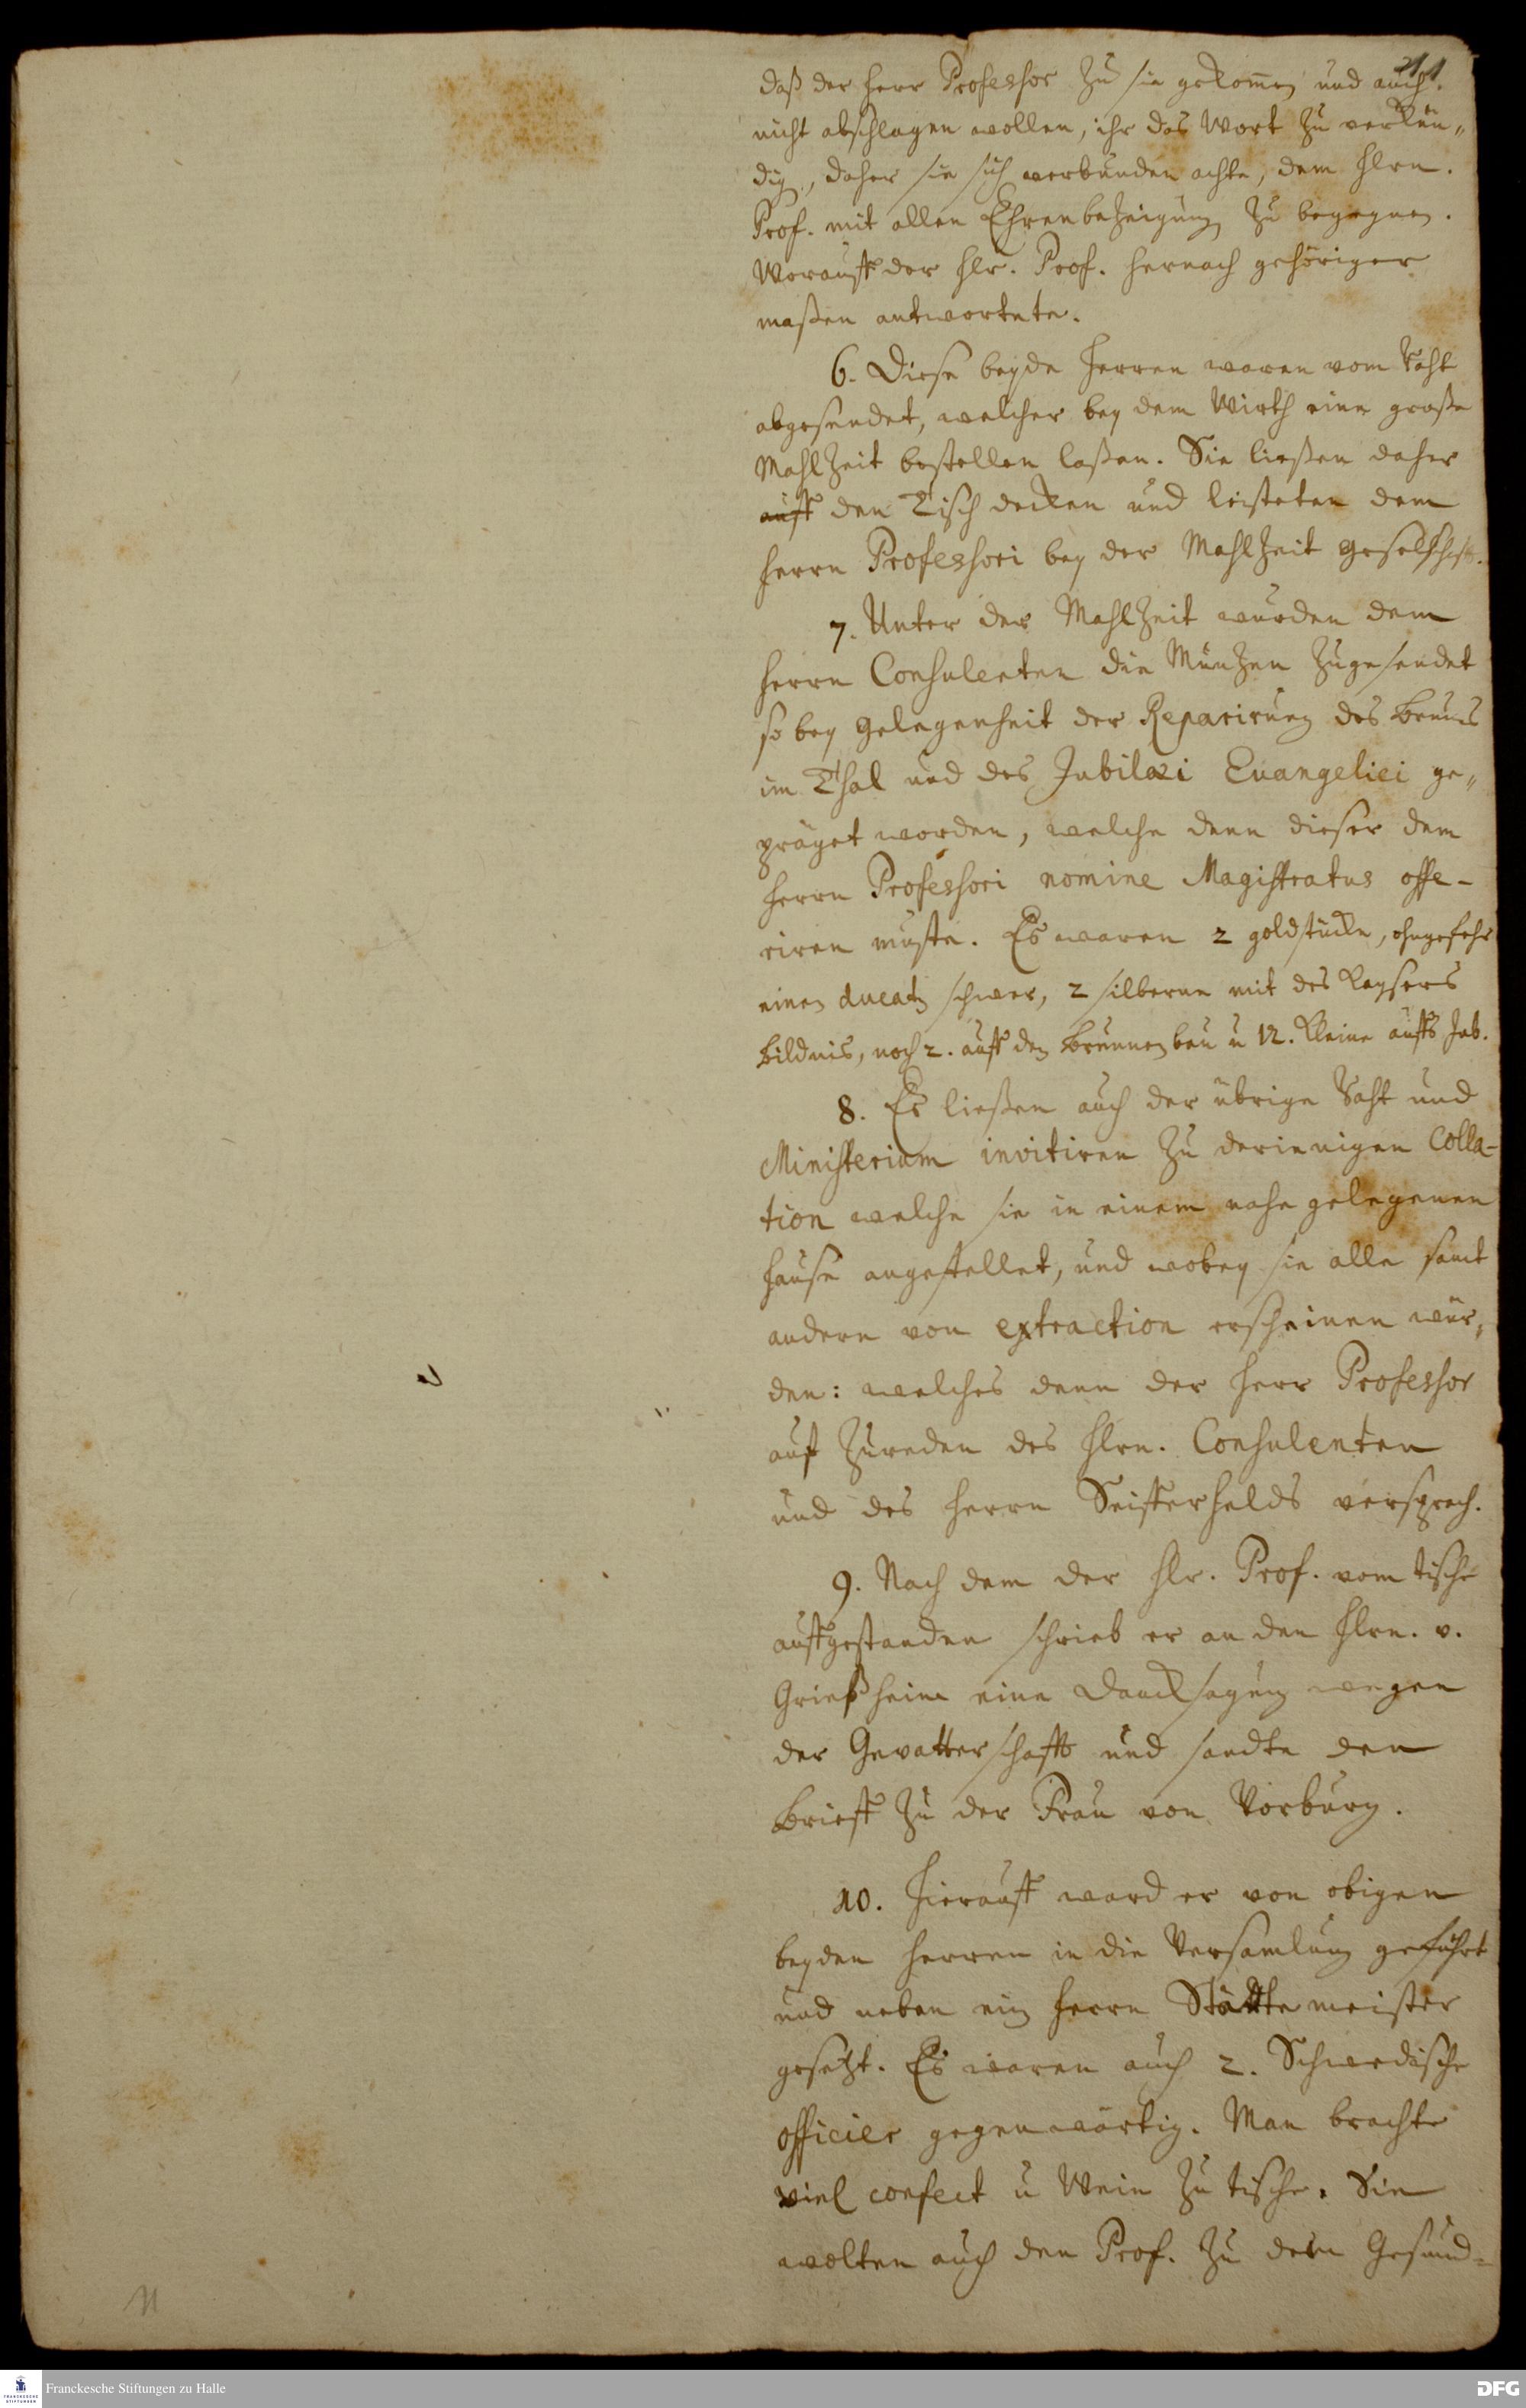 211
daß der Herr Professor zu sie gekom̄en und auch
nicht abschlagen wollen, ihr das Wort zu verkün„
dig., daher sie sich verbunden achte, dem Hlrn.
Prof. mit allen Ehrenbezeigung zu begegnen.
Worauff der Hlr. Prof. hernach gehöriger
maßen antwortete.
6. Diese beyde Herren waren vom Raht
abgesendet, welcher bey dem Wirth eine große
Mahlzeit bestellen laßen. Sie ließen daher
auff den Tisch decken und leisteten dem
Herrn Professori bey der Mahlzeit Gesellschafft.
7. Unter der Mahlzeit wurden dem
Herrn Consulenten die Müntzen zugesendet
so bey Gelegenheit der Reparirung des Bruns
im Thal und des Jubilæi Evangelici ge„
präget worden, welche denn dieser dem
Herrn Professori nomine Magistratus offe-
riren muste. Es waren 2 goldstücke, ohngefehr
einen ducaten schwer, 2 silberne mit des Kaysers
Bildnis, noch 2. auff den Brunnenbau u 12. kleine auffs Jub.
8. Es ließen auch der übrige Raht und
Ministerium invitiren zu derienigen Colla-
tion welche sie in einem nahe gelegenen
Hause angestellet, und wobey sie alle samt
andern von extraction erscheinen wür„
den: welches denn der Herr Professor
auf Zureden des Hlrn. Consulenten
und des Herrn Seifferhelds versprach.
9. Nach dem der Hlr. Prof. vom tische
auffgestanden schrieb er an den Hlrn. v.
Grießheim eine Dancksagung wegen
der Gevatterschafft und sandte den
Brieff zu der Frau von Vorburg.
10. Hierauff ward er von obigen
beyden Herren in die Versamlung geführt
und neben ein Herrn Stättemeister
gesetzt. Es waren auch 2. Schwedische
officier gegenwärtig. Man brachte
viel confect u Wein zu tische. Sie
wolten auch den Prof. zu dem Gesund-
Franckesche Stiftungen zu Halle
FRANCKESCHE STIFTUNGEN
DFG